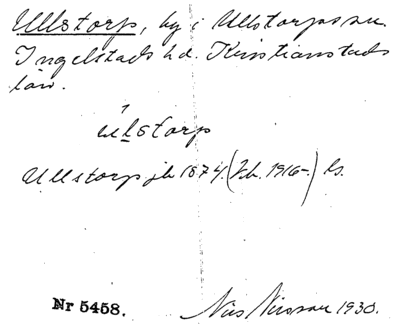 Ullstorp, by i Ullstorps sn.
Ingelstads hd. Kristianstads
län.
ùlstorp
Ullstorp jb 1874. (Tb. 1916-) ls.
Nr 5458. Nils Nilsson 1930.